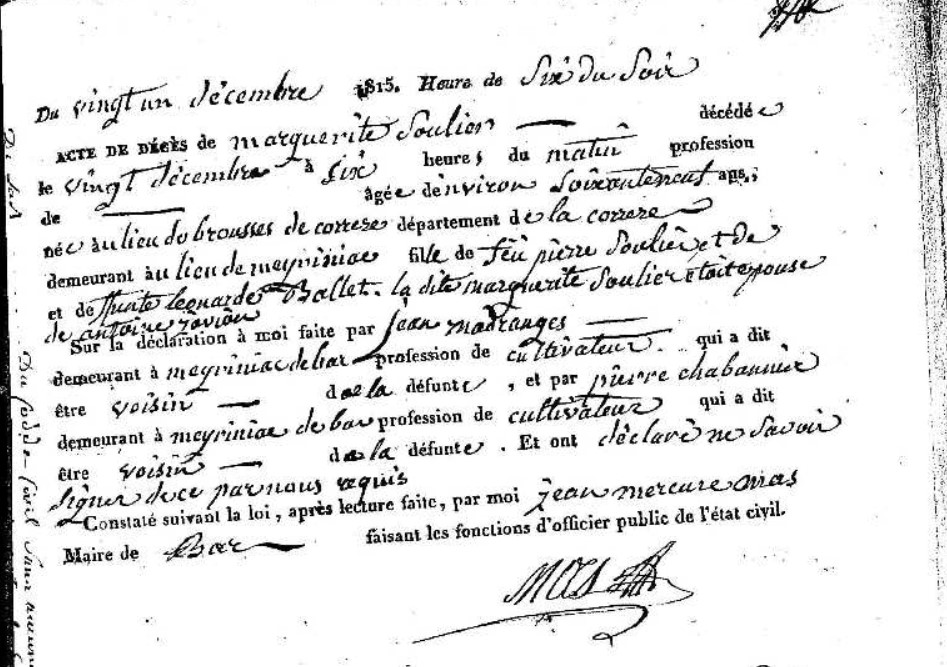 Du vingt un décembre 1815. Heure de Six du Soir
ACTE DE DÉCÈS de marguerite Soulier décédée
le vingt décembre à six heures du matin profession
de âgée denviron Soixanteneuf ans,
née au lieu de brousses de correze département de la correze
demeurant au lieu de meyriniac fille de feu pierre Soulier et de
et de funte leonarde Ballet. la dite marguerite Soulier étoit epouse
de antoine
Sur la déclaration à moi faite par jean madranges
demeurant à meyriniac de bar profession de cultivateur qui a dit
être voisin de la défunte, et par pierre chabannier
demeurant à meyriniac de bar profession de cultivateur qui a dit
être voisin de la défunte. Et ont déclaré ne Savoir
Signer de ce par nous requis
Constaté suivant la loi, après lecture faite, par moi jean mercure mas
Maire de Bar faisant les fonctions d'officier public de l'état civil.
MAS